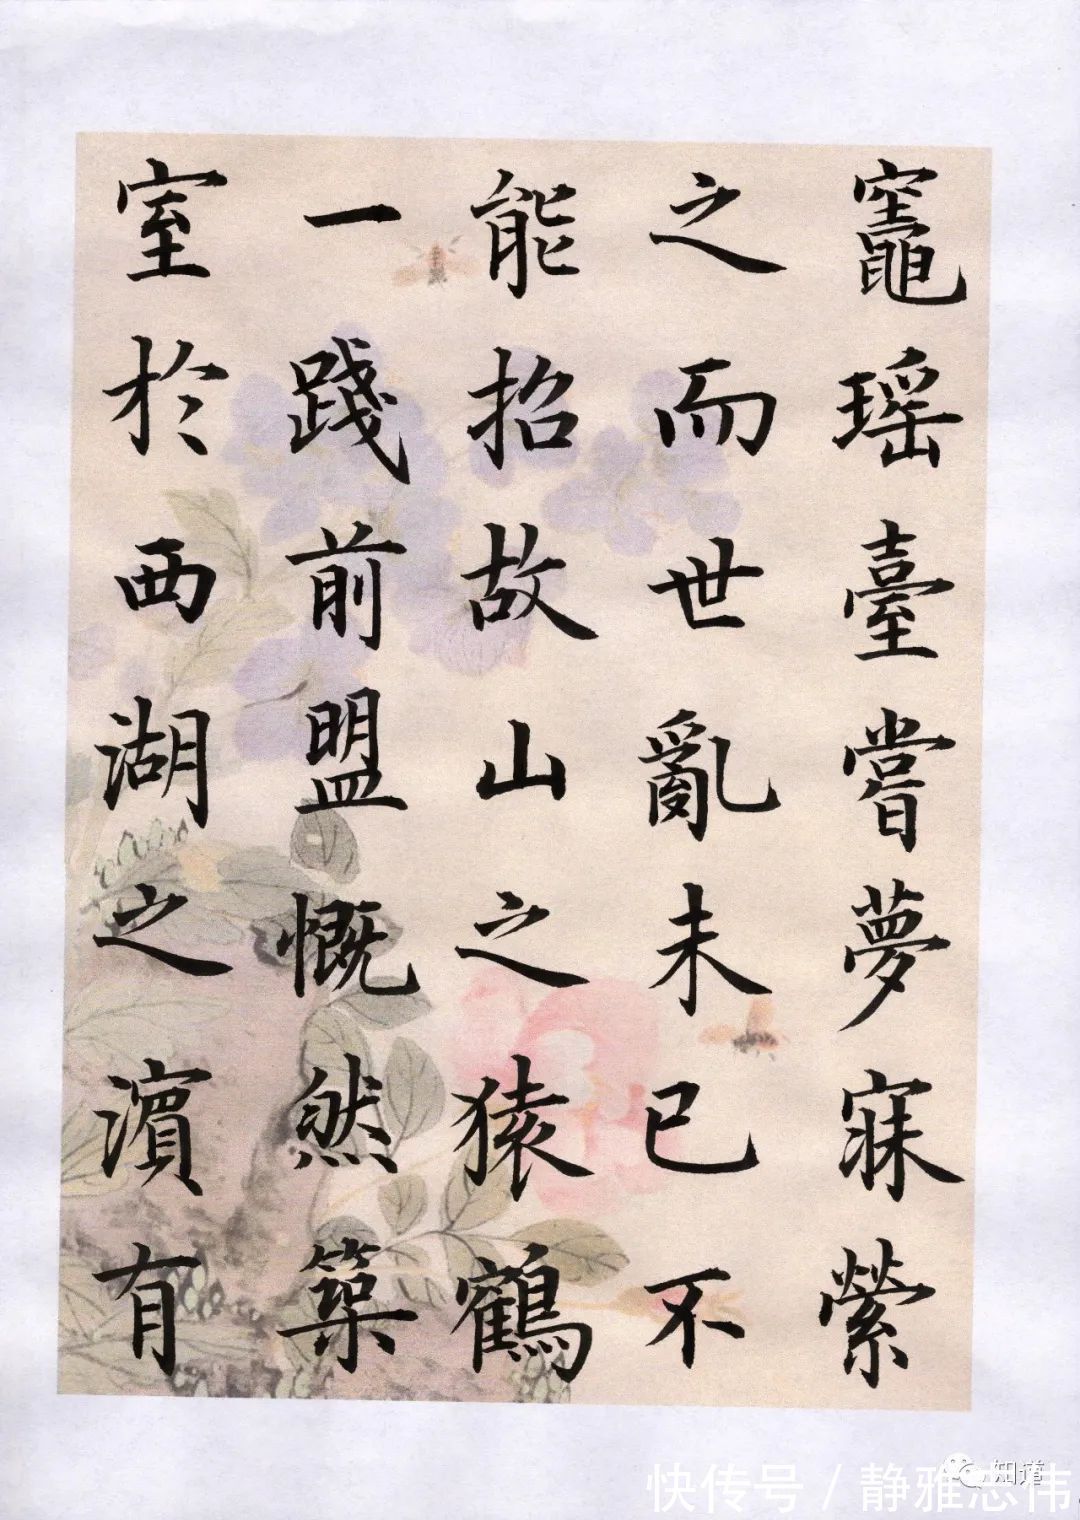 竈瑶臺嘗夢寐縈
之而世亂未已不
能招故山之猿鶴
一踐前盟慨然築
室於西湖之濵有
知道
快传号 / 静雅志伟